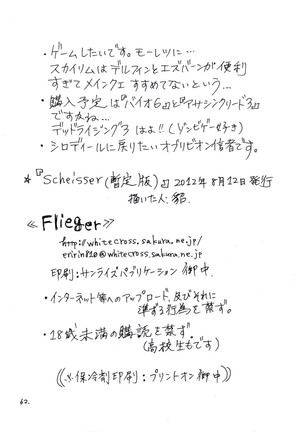 ・ゲームしたいです。モーレツに…
スカイリムはデルフィンとエズバーンが便利
すぎてメインクエすすめてないという…
・購入予定は『バイオ6』と『アサシンクリード3』
ですかね…
デッドライジング3はよ!!(ゾンビゲー好き)
・シロディールに戻りたいオブリビオン信者です。
★『Scheisser(暫定版)』2012年8月12日発行
描いた人:貂
≪Flieger≫
http://whitecross.sakura.ne.jp/
eririn810@whitecross.sakura.ne.jp
印刷:サンライズパブリケーション御中
・インターネット等へのアップロード、及びそれに
準ずる行為を禁ず。
・18歳未満の購読を禁ず。
(高校生もです)
((※保冷剤印刷:プリントオン御中))
62.